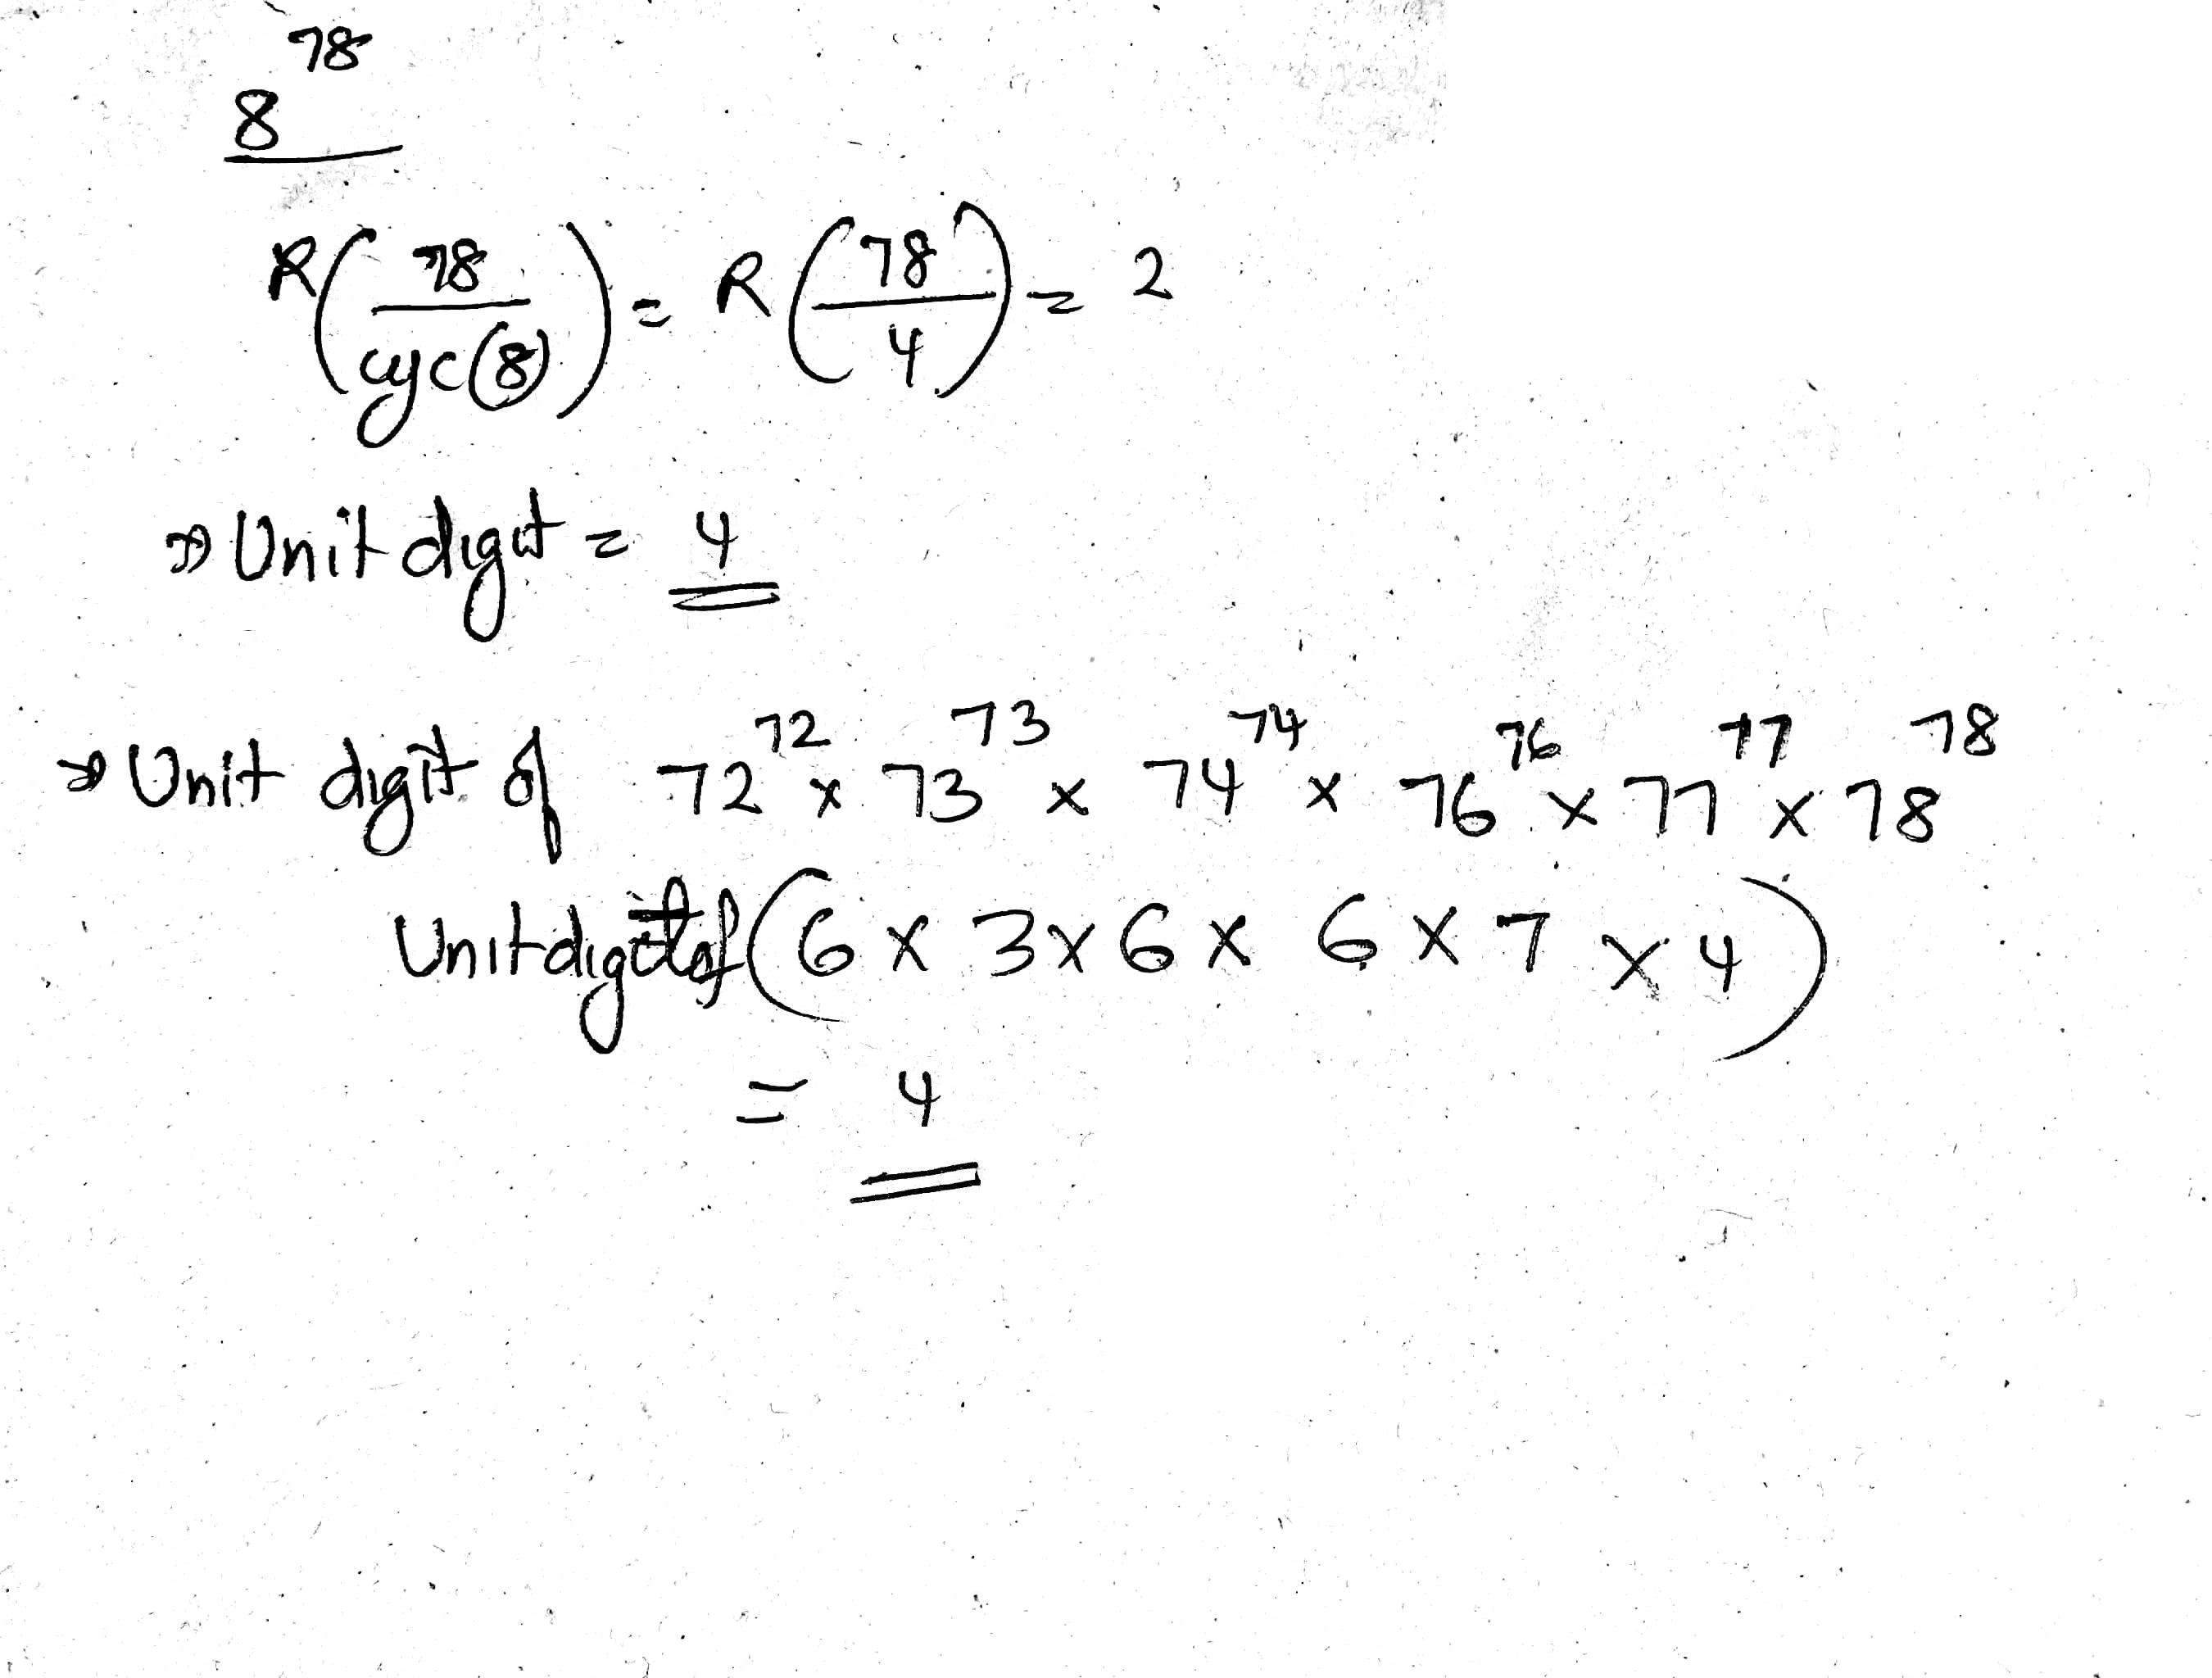 8^78
R(78/cyc(8)) = R(78/4) = 2
⇒ Unit digit = 4
⇒ Unit digit of 72^72 × 73^73 × 74^74 × 76^76 × 77^77 × 78^78
Unit digit of (6 × 3 × 6 × 6 × 7 × 4)
= 4